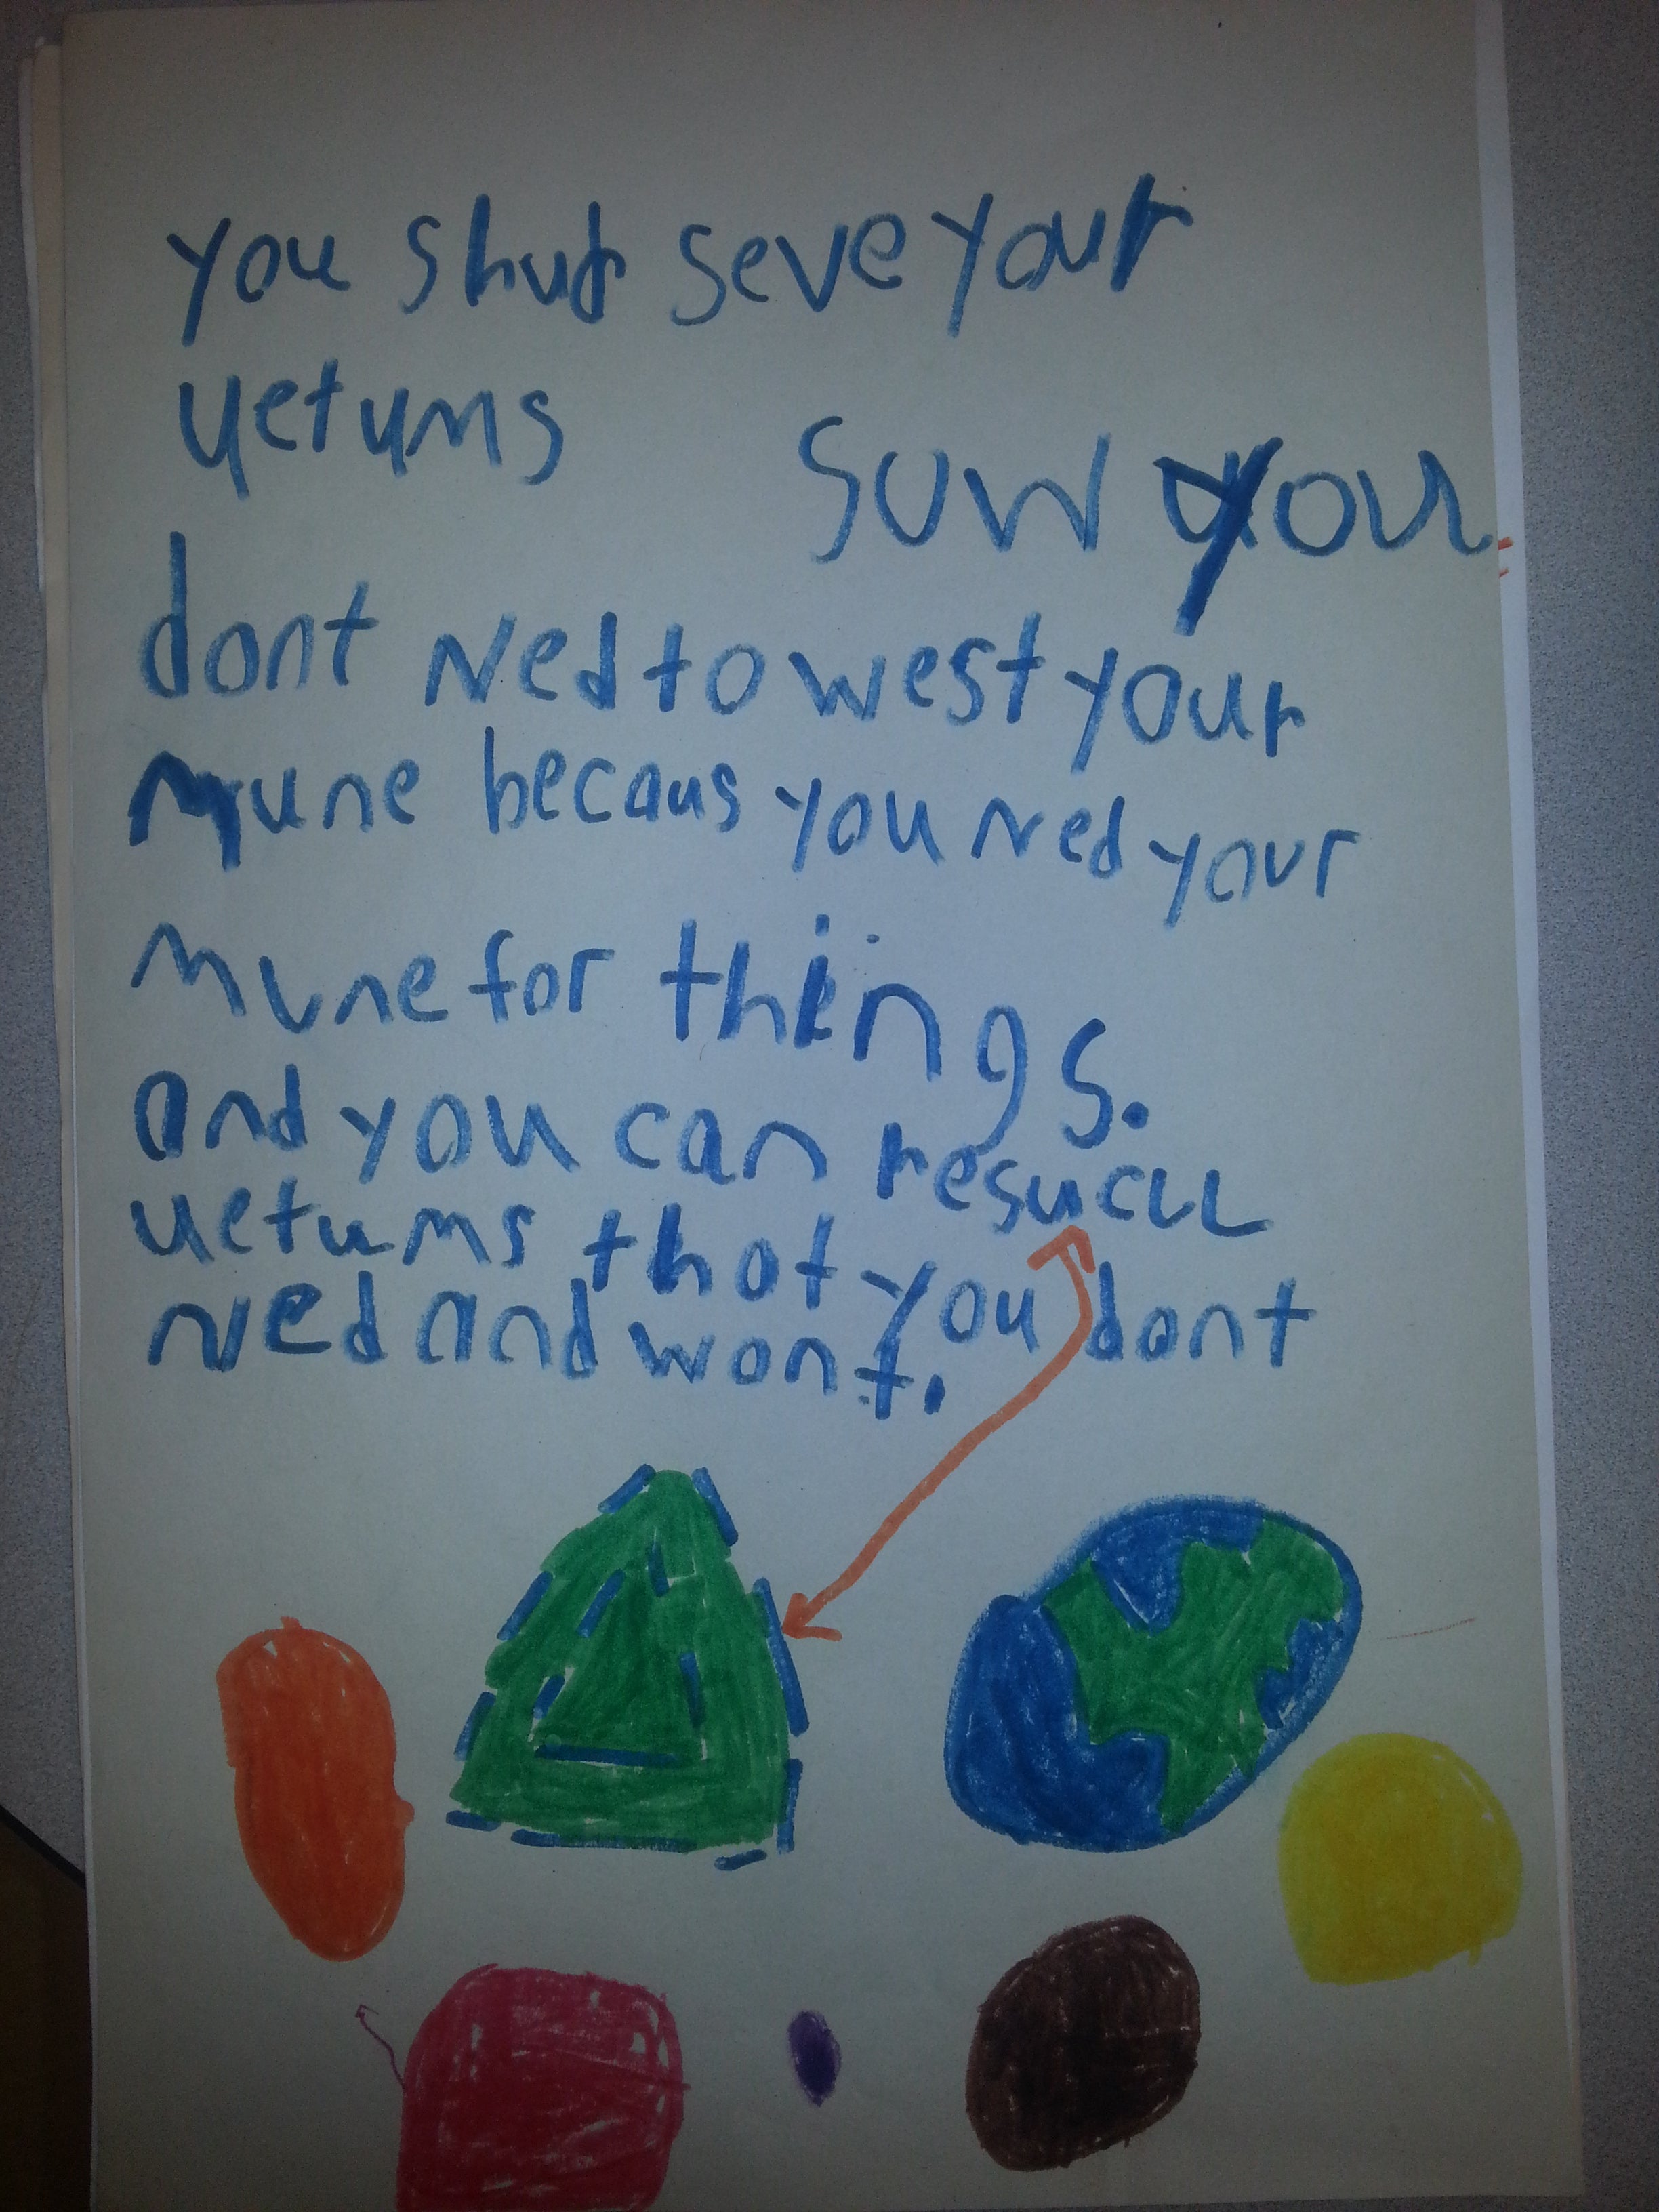 you shud seve your
uetums
suw you
dont Ned to west your
mune becaus you Ned your
mune for things.
and you can resucu
uetums that you dont
Ned and wont.